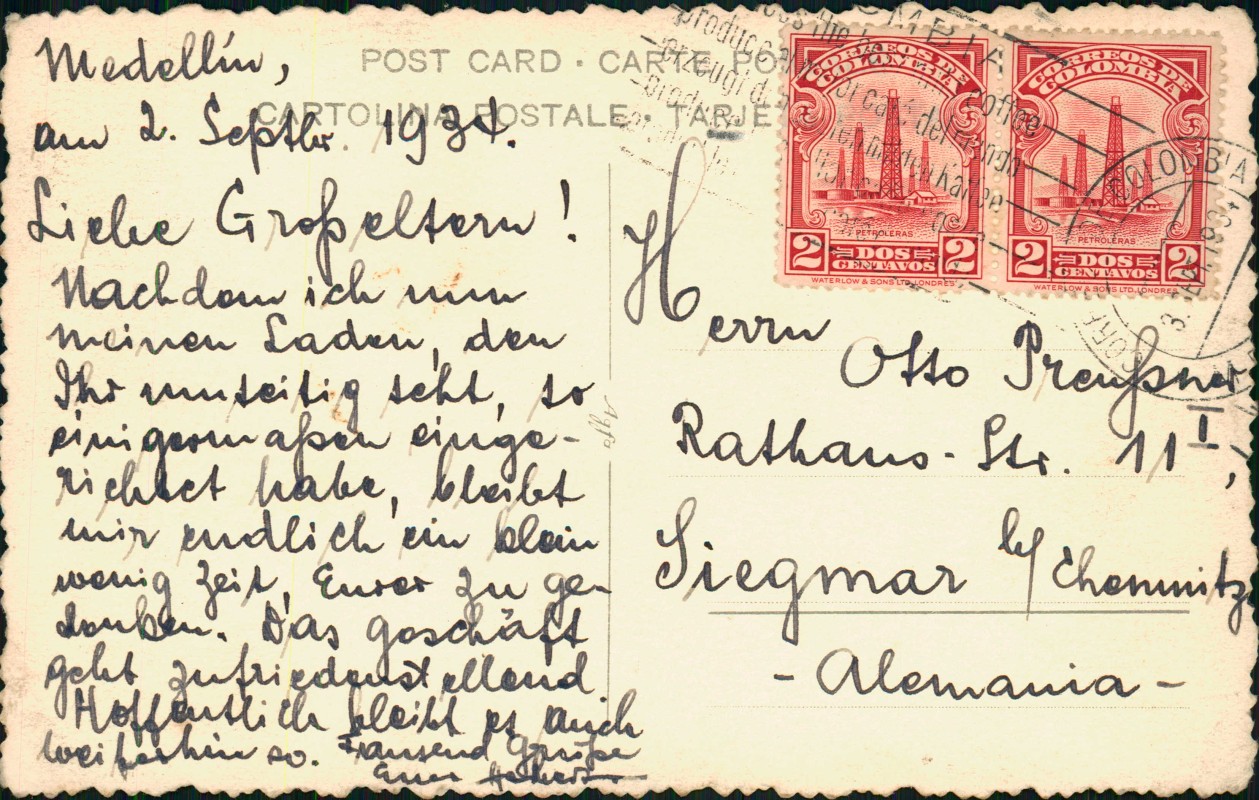 POST CARD · CARTE PO
CARTOLINA POSTALE · TARJE
Medellín,
am 2. Septbr. 1934.
Liebe Großeltern!
Nachdem ich nun
meinen Laden, den
Ihr umseitig seht, so
einigermaßen einge-
richtet habe, bleibt
mir endlich ein klein
wenig Zeit, Eurer zu ge-
denken. Das Geschäft
geht zufriedenstellend.
Hoffentlich bleibt es auch
weiterhin so. Tausend Grüße
Euer
Agfa
CORREOS DE
COLOMBIA
PETROLERAS
2 DOS 2
CENTAVOS
WATERLOW & SONS LTD. LONDRES
CORREOS DE
COLOMBIA
PETROLERAS
2 DOS 2
CENTAVOS
WATERLOW & SONS LTD. LONDRES
produce
coffee
COLOMBIA
Herrn
Otto Preußner
Rathaus-Str. 11 I,
Siegmar b/ Chemnitz
- Alemania -